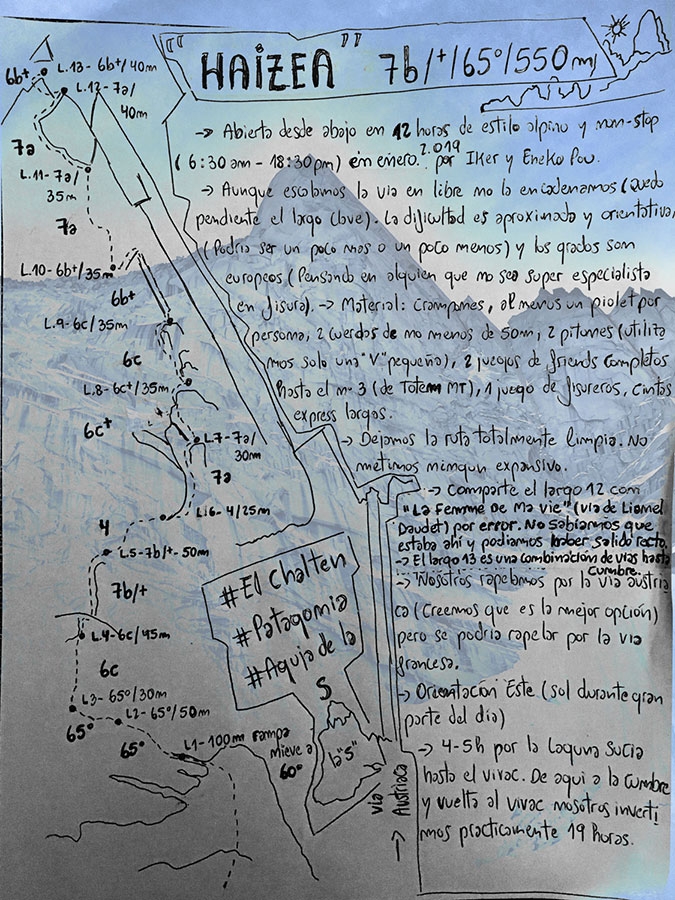 "HAIZEA" 7b/+/65°/550m
-> Abierta desde abajo en 12 horas de estilo alpino y non-stop
(6:30 am - 18:30pm) en enero 2.019 por Iker y Eneko Pou.
-> Aunque escalamos la via en libre no la encadenamos (quedo
pendiente el largo clave). La dificultad es aproximada y orientativa,
(Podria ser un poco mas o un poco menos) y los grados son
europeos (Pensando en alguien que no sea super especialista
en fisura). -> Material: Crampones, al menos un piolet por
persona, 2 cuerdas de no menos de 50m, 2 pitones (utiliza
mos solo una "V" pequeña), 2 juegos de friends completos
hasta el nº 3 (de Totem MT), 1 juego de fisureros, cintas
express largas.
-> Dejamos la ruta totalmente limpia. No
metimos ningun expansivo.
-> Comparte el largo 12 con
"La Femme De Ma Vie" (via de Lionel
Daudet) por error. No sabiamos que
estaba ahi y podiamos haber salido recto.
-> El largo 13 es una combinación de vias hasta
cumbre.
-> Nosotros rapelamos por la via austria
ca (Creemos que es la mejor opción)
pero se podria rapelar por la via
francesa.
-> Orientación Este (sol durante gran
parte del dia)
-> 4-5h por la Laguna Sucia
hasta el vivac. De aqui a la cumbre
y vuelta al vivac nosotros inverti
mos practicamente 19 horas.
L.13- 6b+/40m
6b+
L.12-7a/
40m
7a
L.11-7a/
35m
7a
L.10-6b+/35m
6b+
L.9-6c/35m
6c
L.8-6c+/35m
6c+
L.7-7a/
30m
7a
L.6-4/25m
4
L.5-7b/+-50m
7b/+
L.4-6c/45m
6c
L3-65°/30m
L2-65°/50m
65°
65°
L1-100m rampa
nieve a
60°
#El Chalten
#Patagonia
#Aguja de la
S
la "S"
via
-> Austriaca